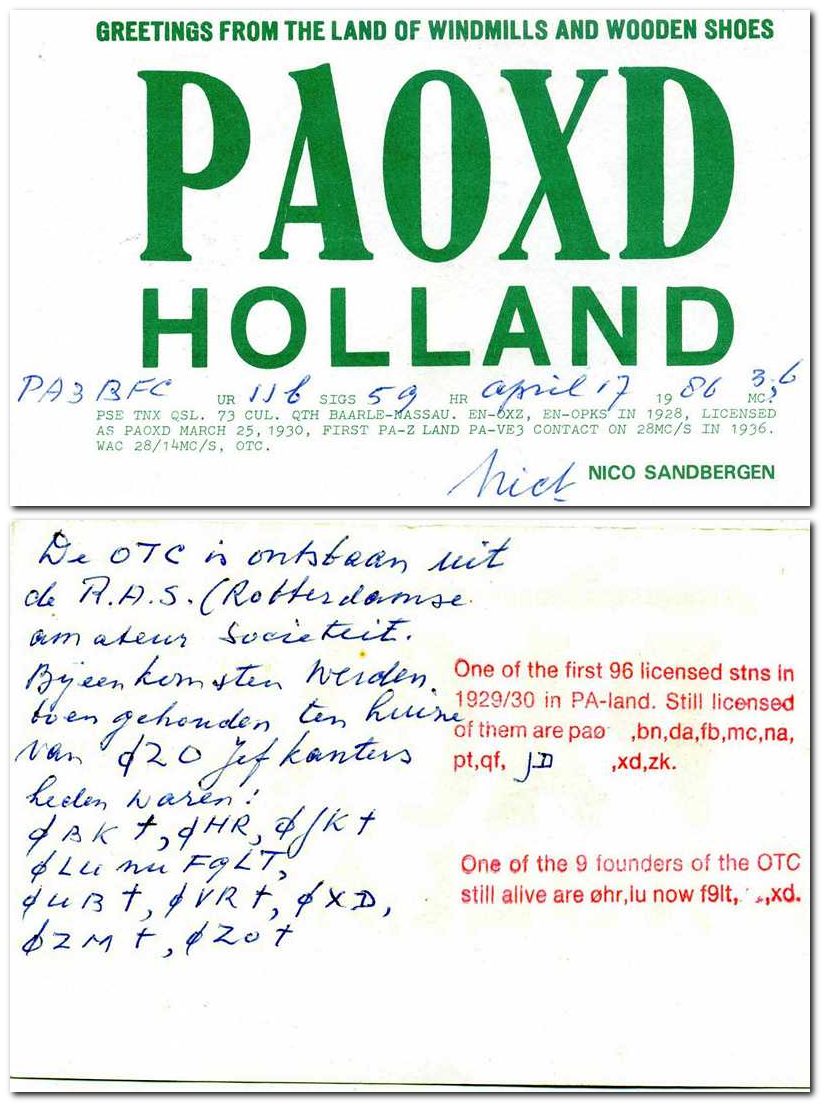 GREETINGS FROM THE LAND OF WINDMILLS AND WOODEN SHOES
PAOXD
HOLLAND
PA3BFC UR SIGS 59 HR april 17 1986 MC 3,6
PSE TNX QSL. 73 CUL. QTH BAARLE-NASSAU. EN-OXZ, EN-OPKS IN 1928, LICENSED
AS PAOXD MARCH 25, 1930, FIRST PA-Z LAND PA-VE3 CONTACT ON 28MC/S IN 1936.
WAC 28/14MC/S, OTC.
Nico NICO SANDBERGEN
De OTC is ontstaan uit
de R.A.S. (Rotterdamse
amateur Societeit.
Bijeenkomsten werden
toen gehouden ten huize
van øZO Jef Kanters
leden waren:
øBK †, øHR, øJK †
øLU nu F9LT,
øUB †, øVR †, øXD,
øZM †, øZO †
One of the first 96 licensed stns in
1929/30 in PA-land. Still licensed
of them are paø ,bn,da,fb,mc,na,
pt,qf, JD ,xd,zk.
One of the 9 founders of the OTC
still alive are øhr,lu now f9lt, ,xd.